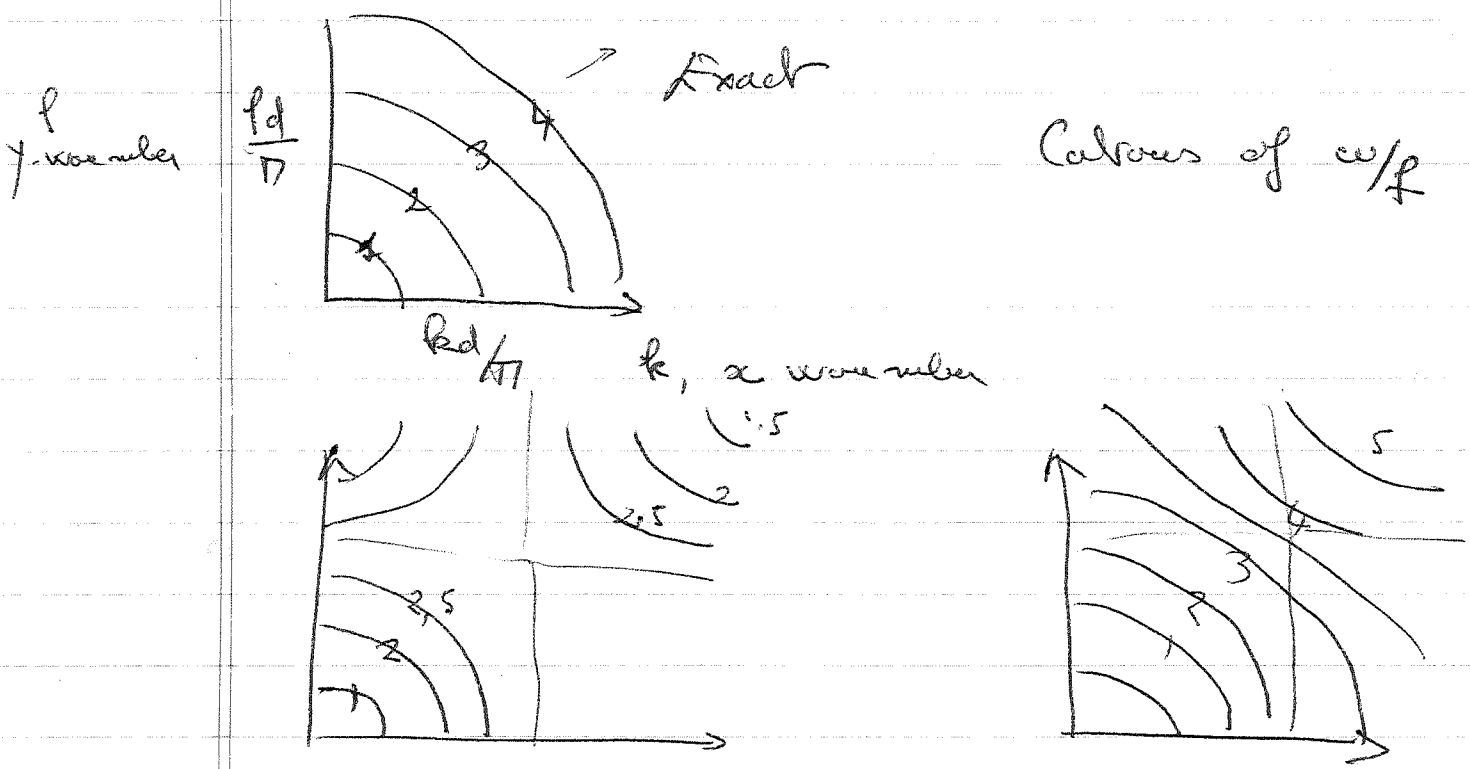 Exact
l
y-wavenumber
ld/π
4
3
2
1
Contours of ω/f
kd/π
k, x wavenumber
1.5
2
2.5
2,5
2
1
5
4
3
2
1